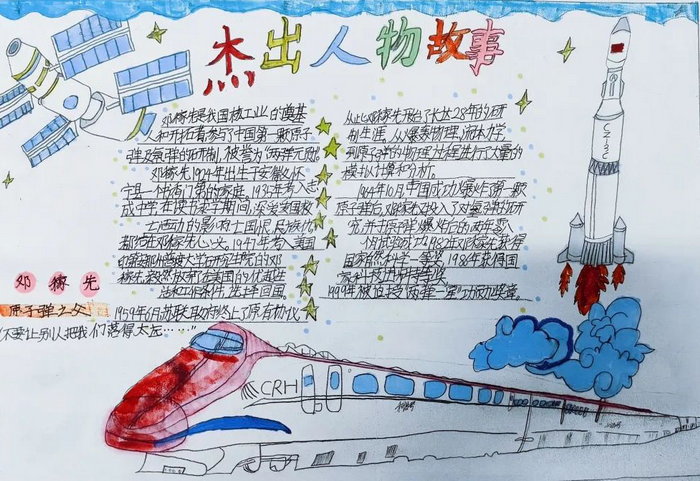 杰出人物故事
邓稼先是我国核工业的奠基
人和开拓者参与了中国第一颗原子
弹及氢弹的研制,被誉为"两弹元勋"
邓稼先1924年出生于安徽怀
宁县一个书香门第的家庭,1935年考入志
成中学,在读书求学期间,深受爱国救
亡运动的影响
邓稼先心头。1947年考入美国
毅然放弃了在美国的优越生
活和工作条件,选择回国。
1959年6月苏联政府终止了原有协议
从此邓稼先开始了长达28年的研
制生涯。从爆轰物理,流体力学,
到原子弹的物理过程进行了大量的
模拟计算和分析。
1964年10月,中国成功爆炸第一颗
原子弹后,邓稼先又投入了对氢弹的研
究,并于原子弹爆炸后的两年零八
个月试验成功。1982年邓稼先获得
国家自然科学一等奖,1986年获得国
家科技进步特等奖,
1999年被追授"两弹一星"功勋奖章。
邓稼先
原子弹之父
"不要让别人把我们落得太远……"
CRH